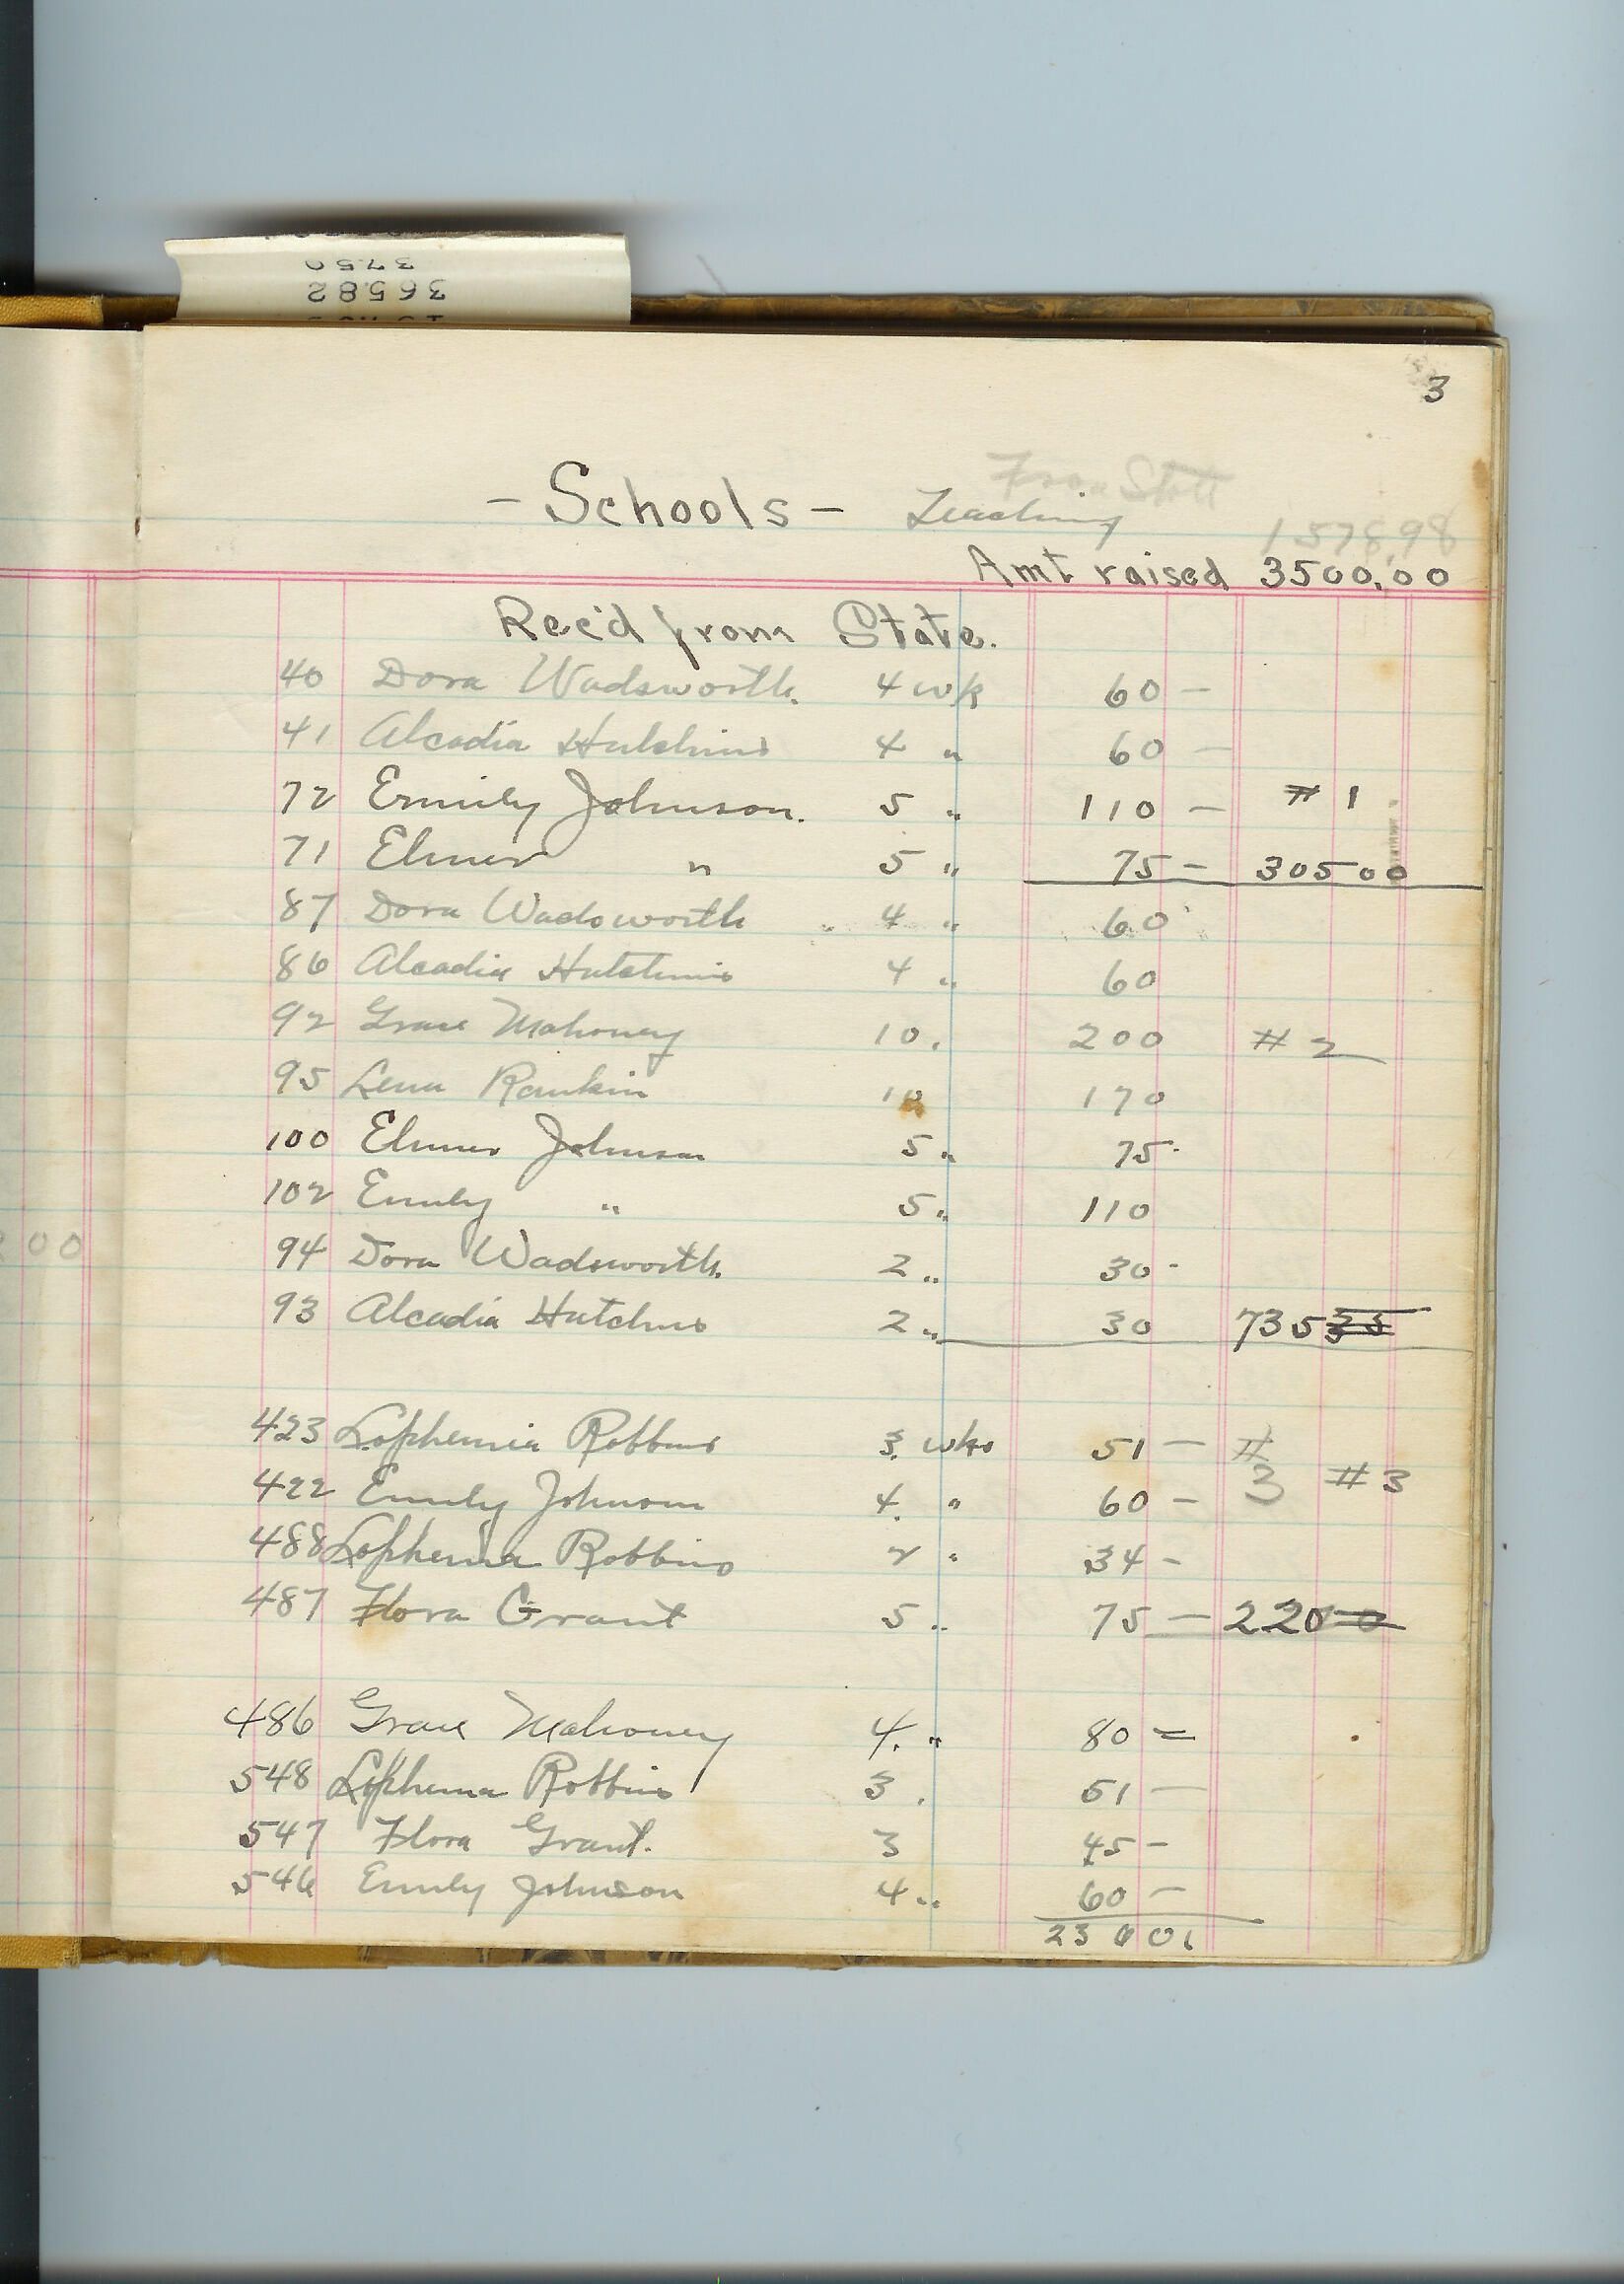 3750
36582
3
From State
- Schools - Teaching
1578.98
Amt raised 3500.00
Rec'd from State.
40 Dora Wadsworth. 4 wk 60 -
41 Alcadia Hutchins 4 " 60 -
72 Emily Johnson. 5 " 110 - # 1
71 Elmer " 5 " 75 - 305 00
87 Dora Wadsworth 4 " 60
86 Alcadia Hutchins 4 " 60
92 Grace Mahoney 10. 200 # 2
95 Lena Rankin 10 170
100 Elmer Johnson 5 " 75
102 Emily " 5 " 110
94 Dora Wadsworth. 2 " 30 -
00
93 Alcadia Hutchins 2 " 30 735
423 Lophemia Robbins 3 wks 51 - #
422 Emily Johnson 4 " 60 - 3 # 3
488 Lophemia Robbins 2 " 34 -
487 Flora Grant 5 " 75 - 220
486 Grace Mahoney 4 " 80 =
548 Lophemia Robbins 3 . 51 -
547 Flora Grant. 3 45 -
546 Emily Johnson 4 " 60 -